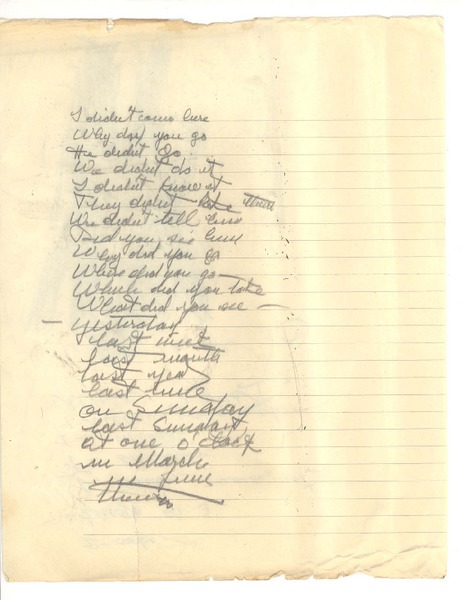 I didn't come here
Why did you go
He didn't Go
We didn't do it
I didn't know it
They didn't
We didn't tell him
Did you see him
Why did you go
Where did you go
Which did you take
What did you see —
— yesterday
last
last month
last year
last
on Sunday
last Sunday
at one o'clock
in March
in June